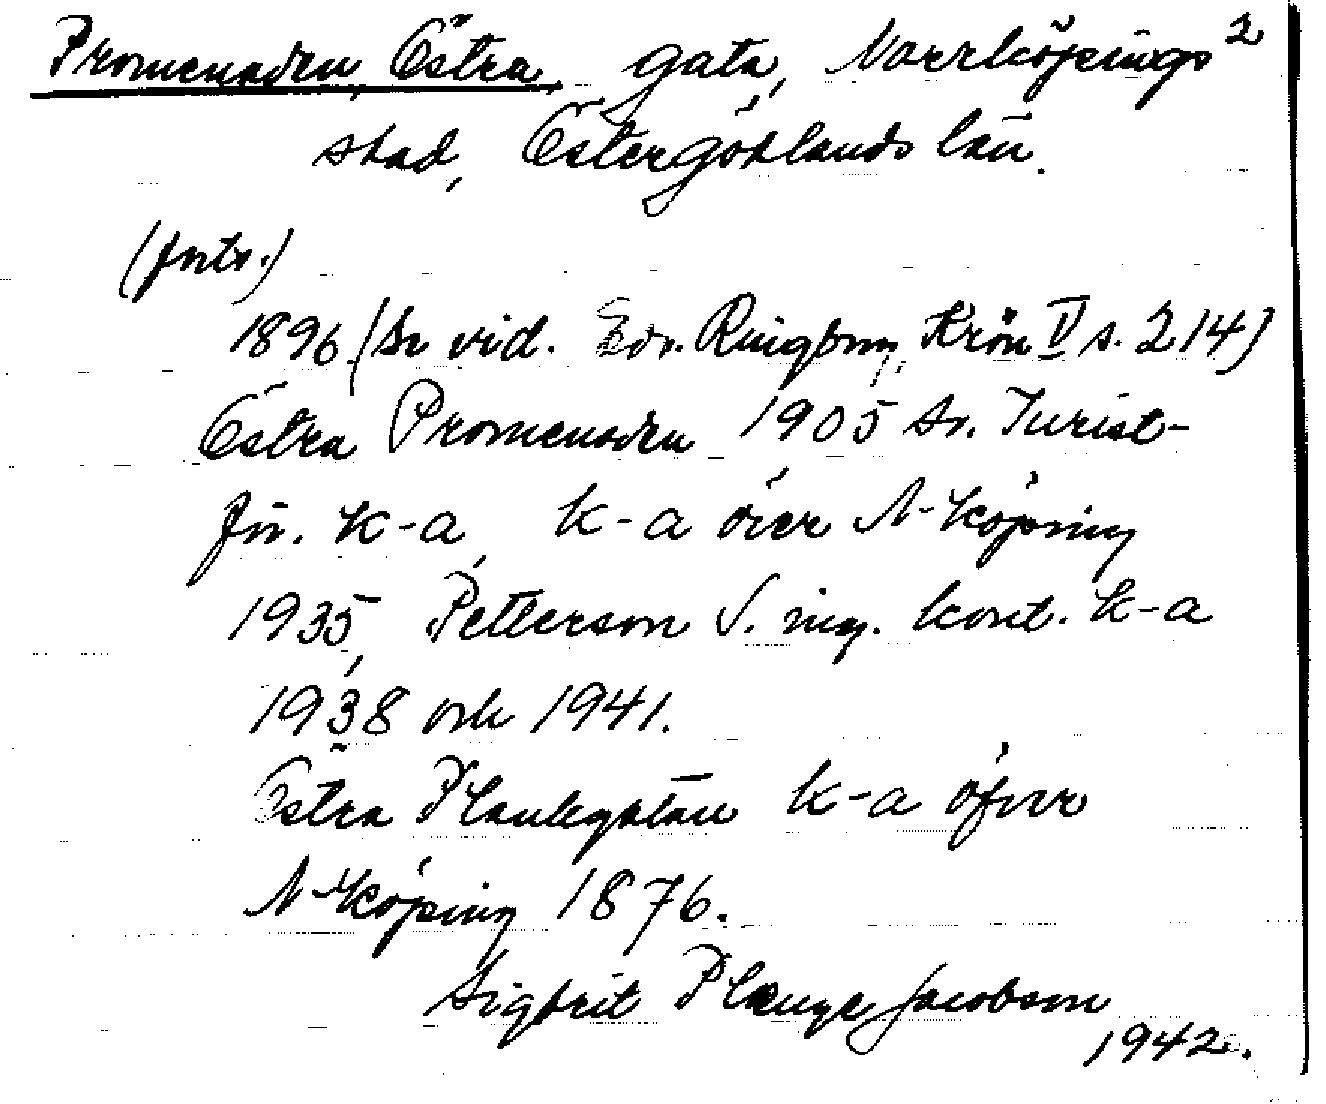 Promenaden, Östra, gata, Norrköpings 2
stad, Östergötlands län.
(forts.)
1896 (Se vid. Edv. Ringborg, Krön V s. 214)
Östra Promenaden 1905 Sv. Turist-
för. k-a, k-a över N-köping
1935, Petterson S. ing. kont. k-a
1938 och 1941.
Östra Plankgatan k-a öfver
N-köping 1876.
Sigbrit Plænge Jacobson
1942.